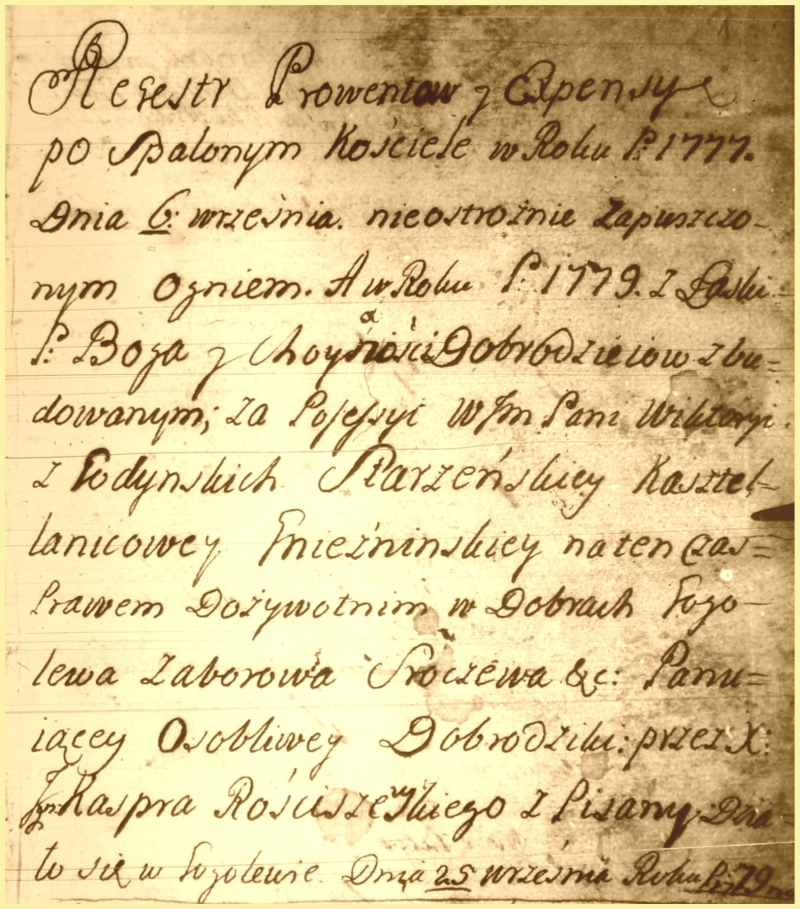 Regestr Prowentow y Expensy
po Spalonym Kościele w Roku P: 1777.
Dnia 6: września. nieostrożnie Zapuszczo-
nym Ogniem. A w Roku P: 1779. z Łaski
P: Boga y Choyności Dobrodzieiow zbu=
dowanym; za Possessyi WJm Pani Wiktoryi.
z Godynskich Starzeńskiey Kasztel-
lanicowey Gnieźninskiey na ten czas=
Prawem Dożywotnim w Dobrach Gogo-
lewa Zaborowa Sroczewa &c: Panu=
iącey Osobliwey Dobrodziki: przez X:
Kaspra Rościszewskiego z Pisany. Dzia-
ło się w Gogolewie. Dnia 25 września Roku